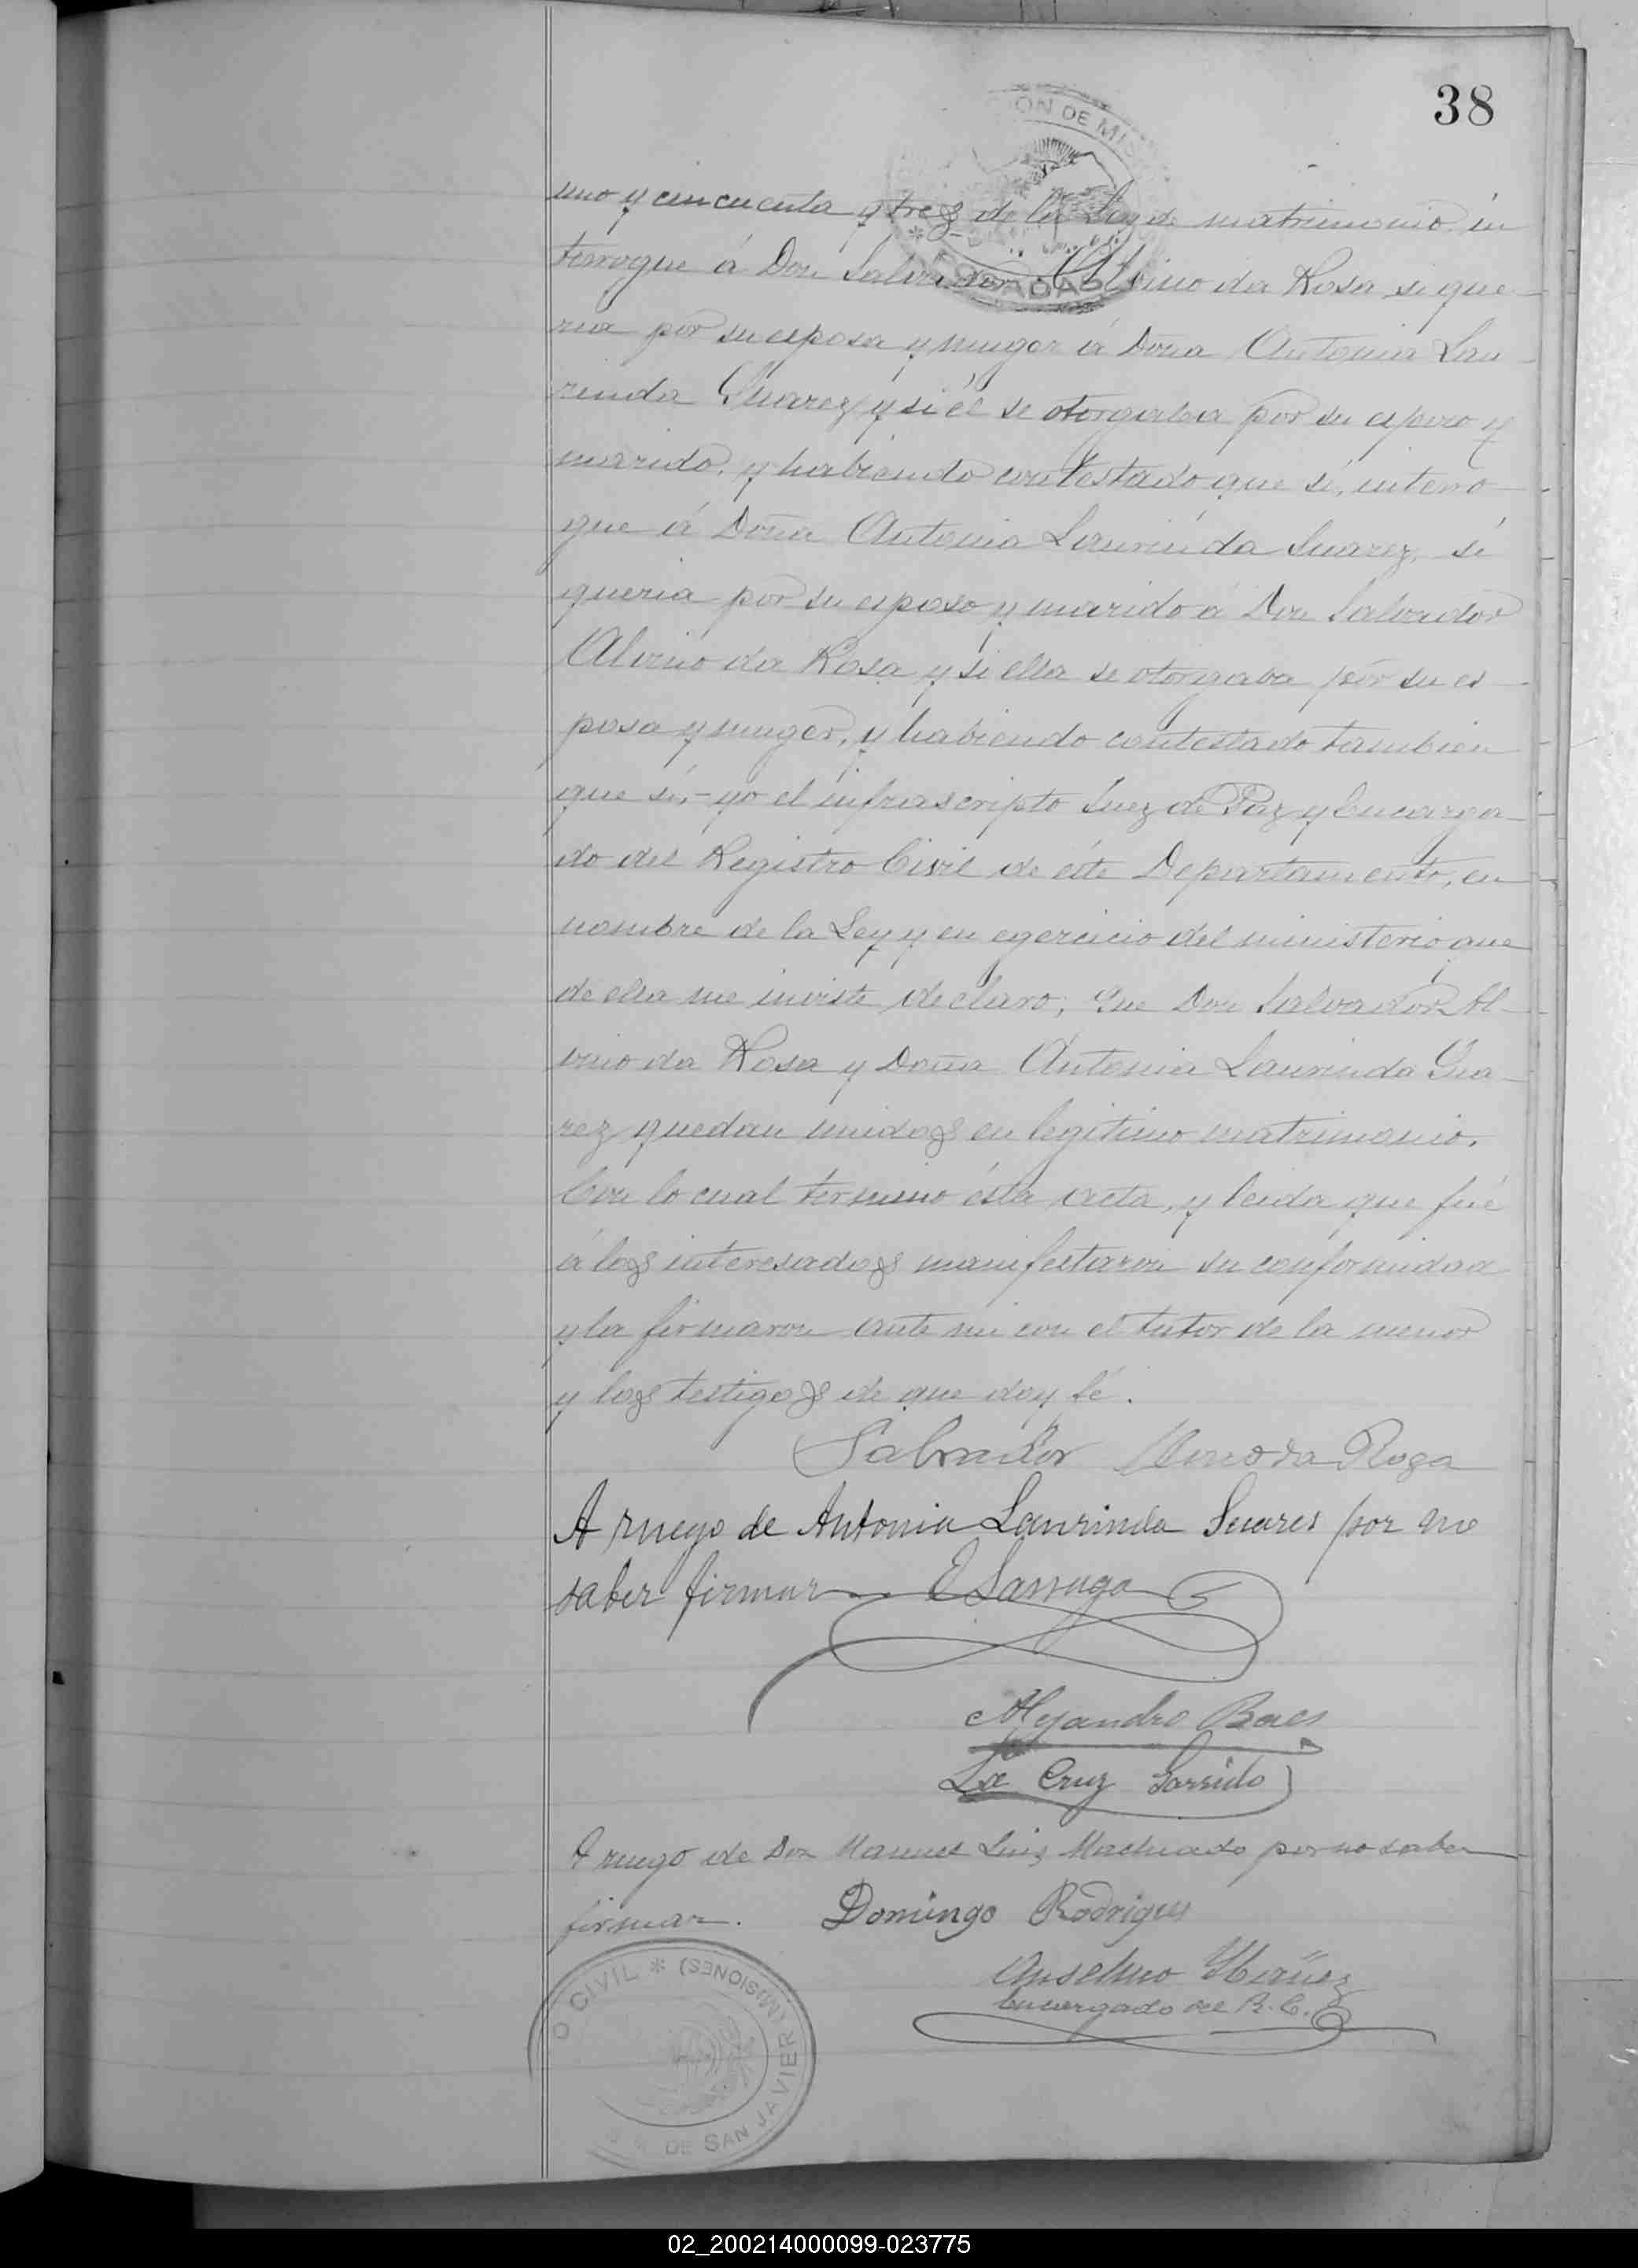 38
ON DE MIS
POSADAS
uno y cincuenta y tres de la Ley de matrimonio in
terrogue á Don Salvador Alvino da Rosa si que
ria por su esposa y muger á Doña Antonia Lau
rinda Suarez y si él se otorgaba por su esposo y
marido, y habiendo contestado que sí, interro
gue á Doña Antonia Laurinda Suarez, si
queria por su esposo y marido á Don Salvador
Alvino da Rosa y si ella se otorgaba por su es
posa y muger, y habiendo contestado tambien
que sí,- yo el infrascripto Juez de Paz y Encarga
do del Registro Civil de éste Departamento, en
nombre de la Ley y en egercicio del ministerio que
de ella me inviste declaro; Que Don Salvador Al
vino da Rosa y Doña Antonia Laurinda Sua
rez quedan unidos en legitimo matrimonio.
Con lo cual terminó ésta acta, y leida que fué
á los interesados manifestaron su conformidad
y la firmaron ante mi con el tutor de la menor
y los testigos de que doy fé.
Salvador Alvino da Rosa
A ruego de Antonia Laurinda Suares por no
saber firmar
Alejandro Baes
La Cruz Garrido
A ruego de Don Manuel Luiz Machado por no saber
firmar. Domingo Rodrigues
Anselmo
Encargado del R. C.
O CIVIL * (MISIONES)
DE SAN JAVIER
02_200214000099-023775